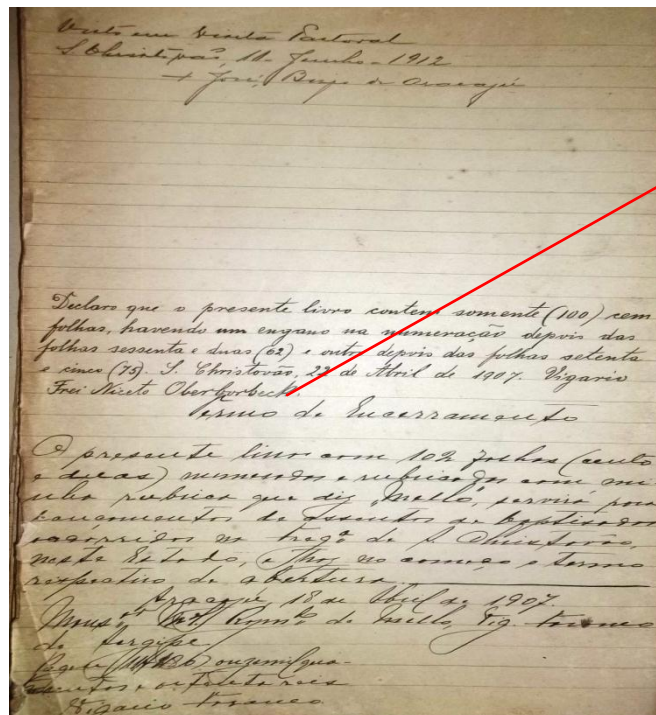 Visto em Visita Pastoral
S. Christovão, 11 Junho - 1912
+ José, Bispo de Aracajú
Declaro que o presente livro contem somente (100) cem
folhas, havendo um engano na numeração depois das
folhas sessenta e duas (62) e outro depois das folhas setenta
e cinco (75). S. Christovão, 22 de Abril de 1907. Vigario
Frei Niceto Oberborbeck.
Termo de Encerramento
O presente livro com 102 folhas (cento
e duas) numerados e rubricados com mi
nha rubrica que diz "Mello", servirá para
lançamentos de assentos de baptisados
occorridos na freg.ª de S. Christovão,
neste Estado, e no começo o termo
respectivo de abertura.
Aracajú, 18 de Abril de 1907.
de Mello, Vig. Foraneo
de Sergipe
onze mil qua-
trocentos e oitenta reis
Vigario Foraneo